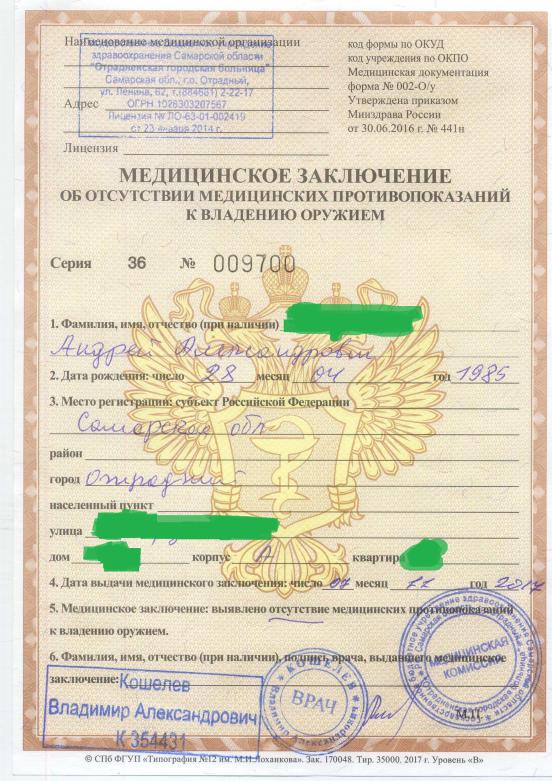 Наименование медицинской организации
здравоохранения Самарской области
"Отрадненская городская больница"
Самарская обл., г.о. Отрадный,
ул. Ленина, 62, т.(884661) 2-22-17
Адрес
ОГРН 1026303207567
Лицензия № ЛО-63-01-002419
от 23 января 2014 г.
Лицензия
код формы по ОКУД
код учреждения по ОКПО
Медицинская документация
форма № 002-О/у
Утверждена приказом
Минздрава России
от 30.06.2016 г. № 441н
МЕДИЦИНСКОЕ ЗАКЛЮЧЕНИЕ
ОБ ОТСУТСТВИИ МЕДИЦИНСКИХ ПРОТИВОПОКАЗАНИЙ
К ВЛАДЕНИЮ ОРУЖИЕМ
Серия 36 № 009700
1. Фамилия, имя, отчество (при наличии)
Андрей Александрович
2. Дата рождения: число 28 месяц 04 год 1985
3. Место регистрации: субъект Российской Федерации
Самарская обл
район
город Отрадный
населенный пункт
улица
дом корпус А квартира
4. Дата выдачи медицинского заключения: число 07 месяц 11 год 2017
5. Медицинское заключение: выявлено отсутствие медицинских противопоказаний
к владению оружием.
6. Фамилия, имя, отчество (при наличии), подпись врача, выдавшего медицинское
заключение: Кошелев
Владимир Александрович
К 354431
КОШЕЛЕВ
ВРАЧ
Владимир Александрович
МЕДИЦИНСКАЯ
КОМИССИЯ
М.П.
© СПб ФГУП «Типография №12 им. М.И.Лоханкова». Зак. 170048. Тир. 35000, 2017 г. Уровень «В»